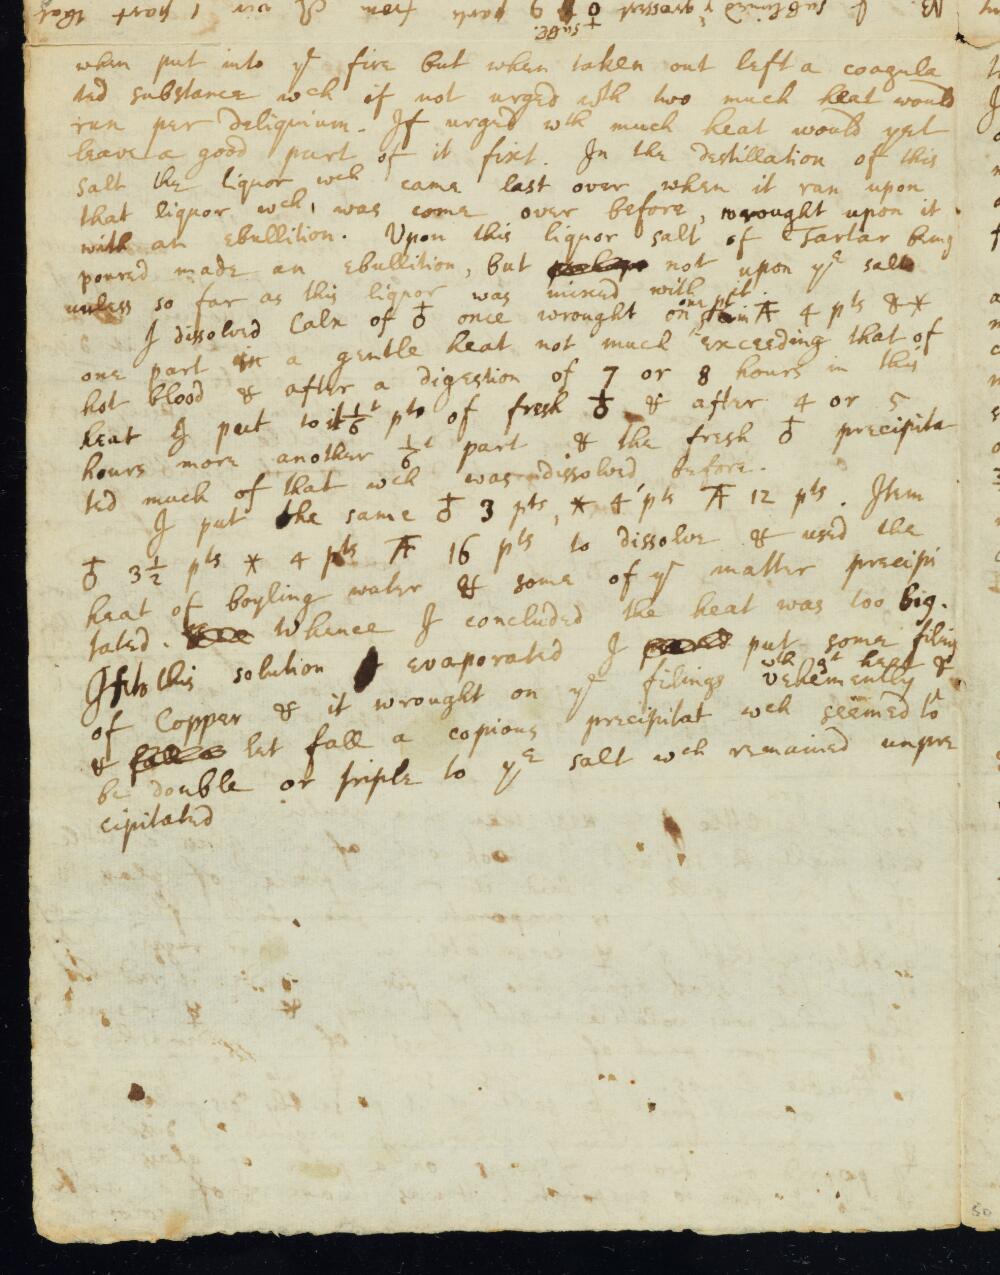 when put into yͤ fire but when taken out left a coagula
ted substance wch if not urged wth two much heat would
run per deliquium. If urged wth much heat would yet
leave a good part of it fixt. In the destillation of this
salt the liquor wch came last over when it ran upon
that liquor wch, was come over before, wrought upon it
with an ebullition. Upon this liquor salt of Tartar being
poured made an ebullition, but not upon yͤ salt
unless so far as this liquor was mixed with it.
I dissolved Calx of ♁ once wrought on one pt in A͞F 4 pts & ✱
one part in a gentle heat not much exceeding that of
hot blood & after a digestion of 7 or 8 hours in this
heat I put to it 1/6t pts of fresh ♁ & after 4 or 5
hours more another 1/6t part & the fresh ♁ precipita
ted much of that wch was dissolved before.
I put the same ♁ 3 pts, ✱ 4 pts A͞F 12 pts. Item
♁ 3 1/2 pts ✱ 4 pts A͞F 16 pts to dissolve & used the
heat of boyling water & some of yͤ matter precipi
tated. Whence I concluded the heat was too big.
Into this solution evaporated I put some filings
of Copper & it wrought on yͤ filings vehemently wth gt heat &
& let fall a copious precipitat wch seemed to
be double or triple to yͤ salt wch remained unpre
cipitated